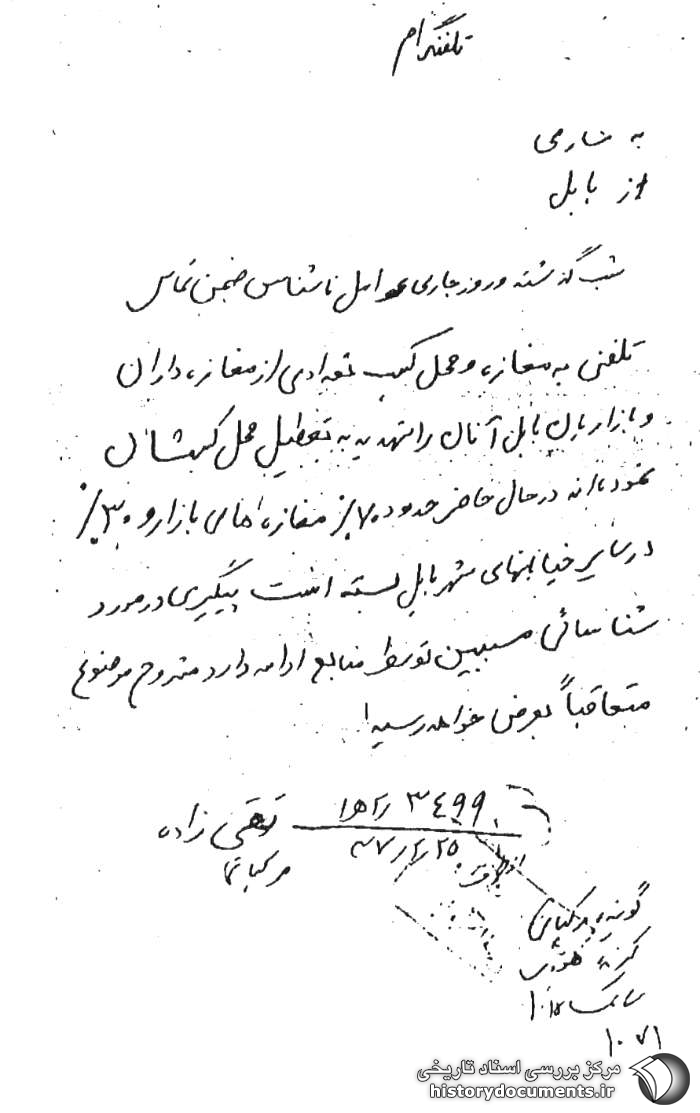 تلفنگرام
به ساری
از بابل
شب گذشته و روز جاری عوامل ناشناس ضمن تماس
تلفنی به مغازه و محل کسب تعدادی از مغازه داران
و بازاریان بابل آنان را تهدید به تعطیل محل کسبشان
نموده اند در حال حاضر حدود ۷۰٪ مغازه های بازار و ۳۰٪
در سایر خیابانهای شهر بابل بسته است پیگیری در مورد
شناسائی مسببین توسط منابع ادامه دارد مشروح موضوع
متعاقباً بعرض خواهد رسید
۳۴۹۹
تقی زاده
گوینده
گیرنده
ساعت
۱۰۷۱
مرکز بررسی اسناد تاریخی
historydocuments.ir